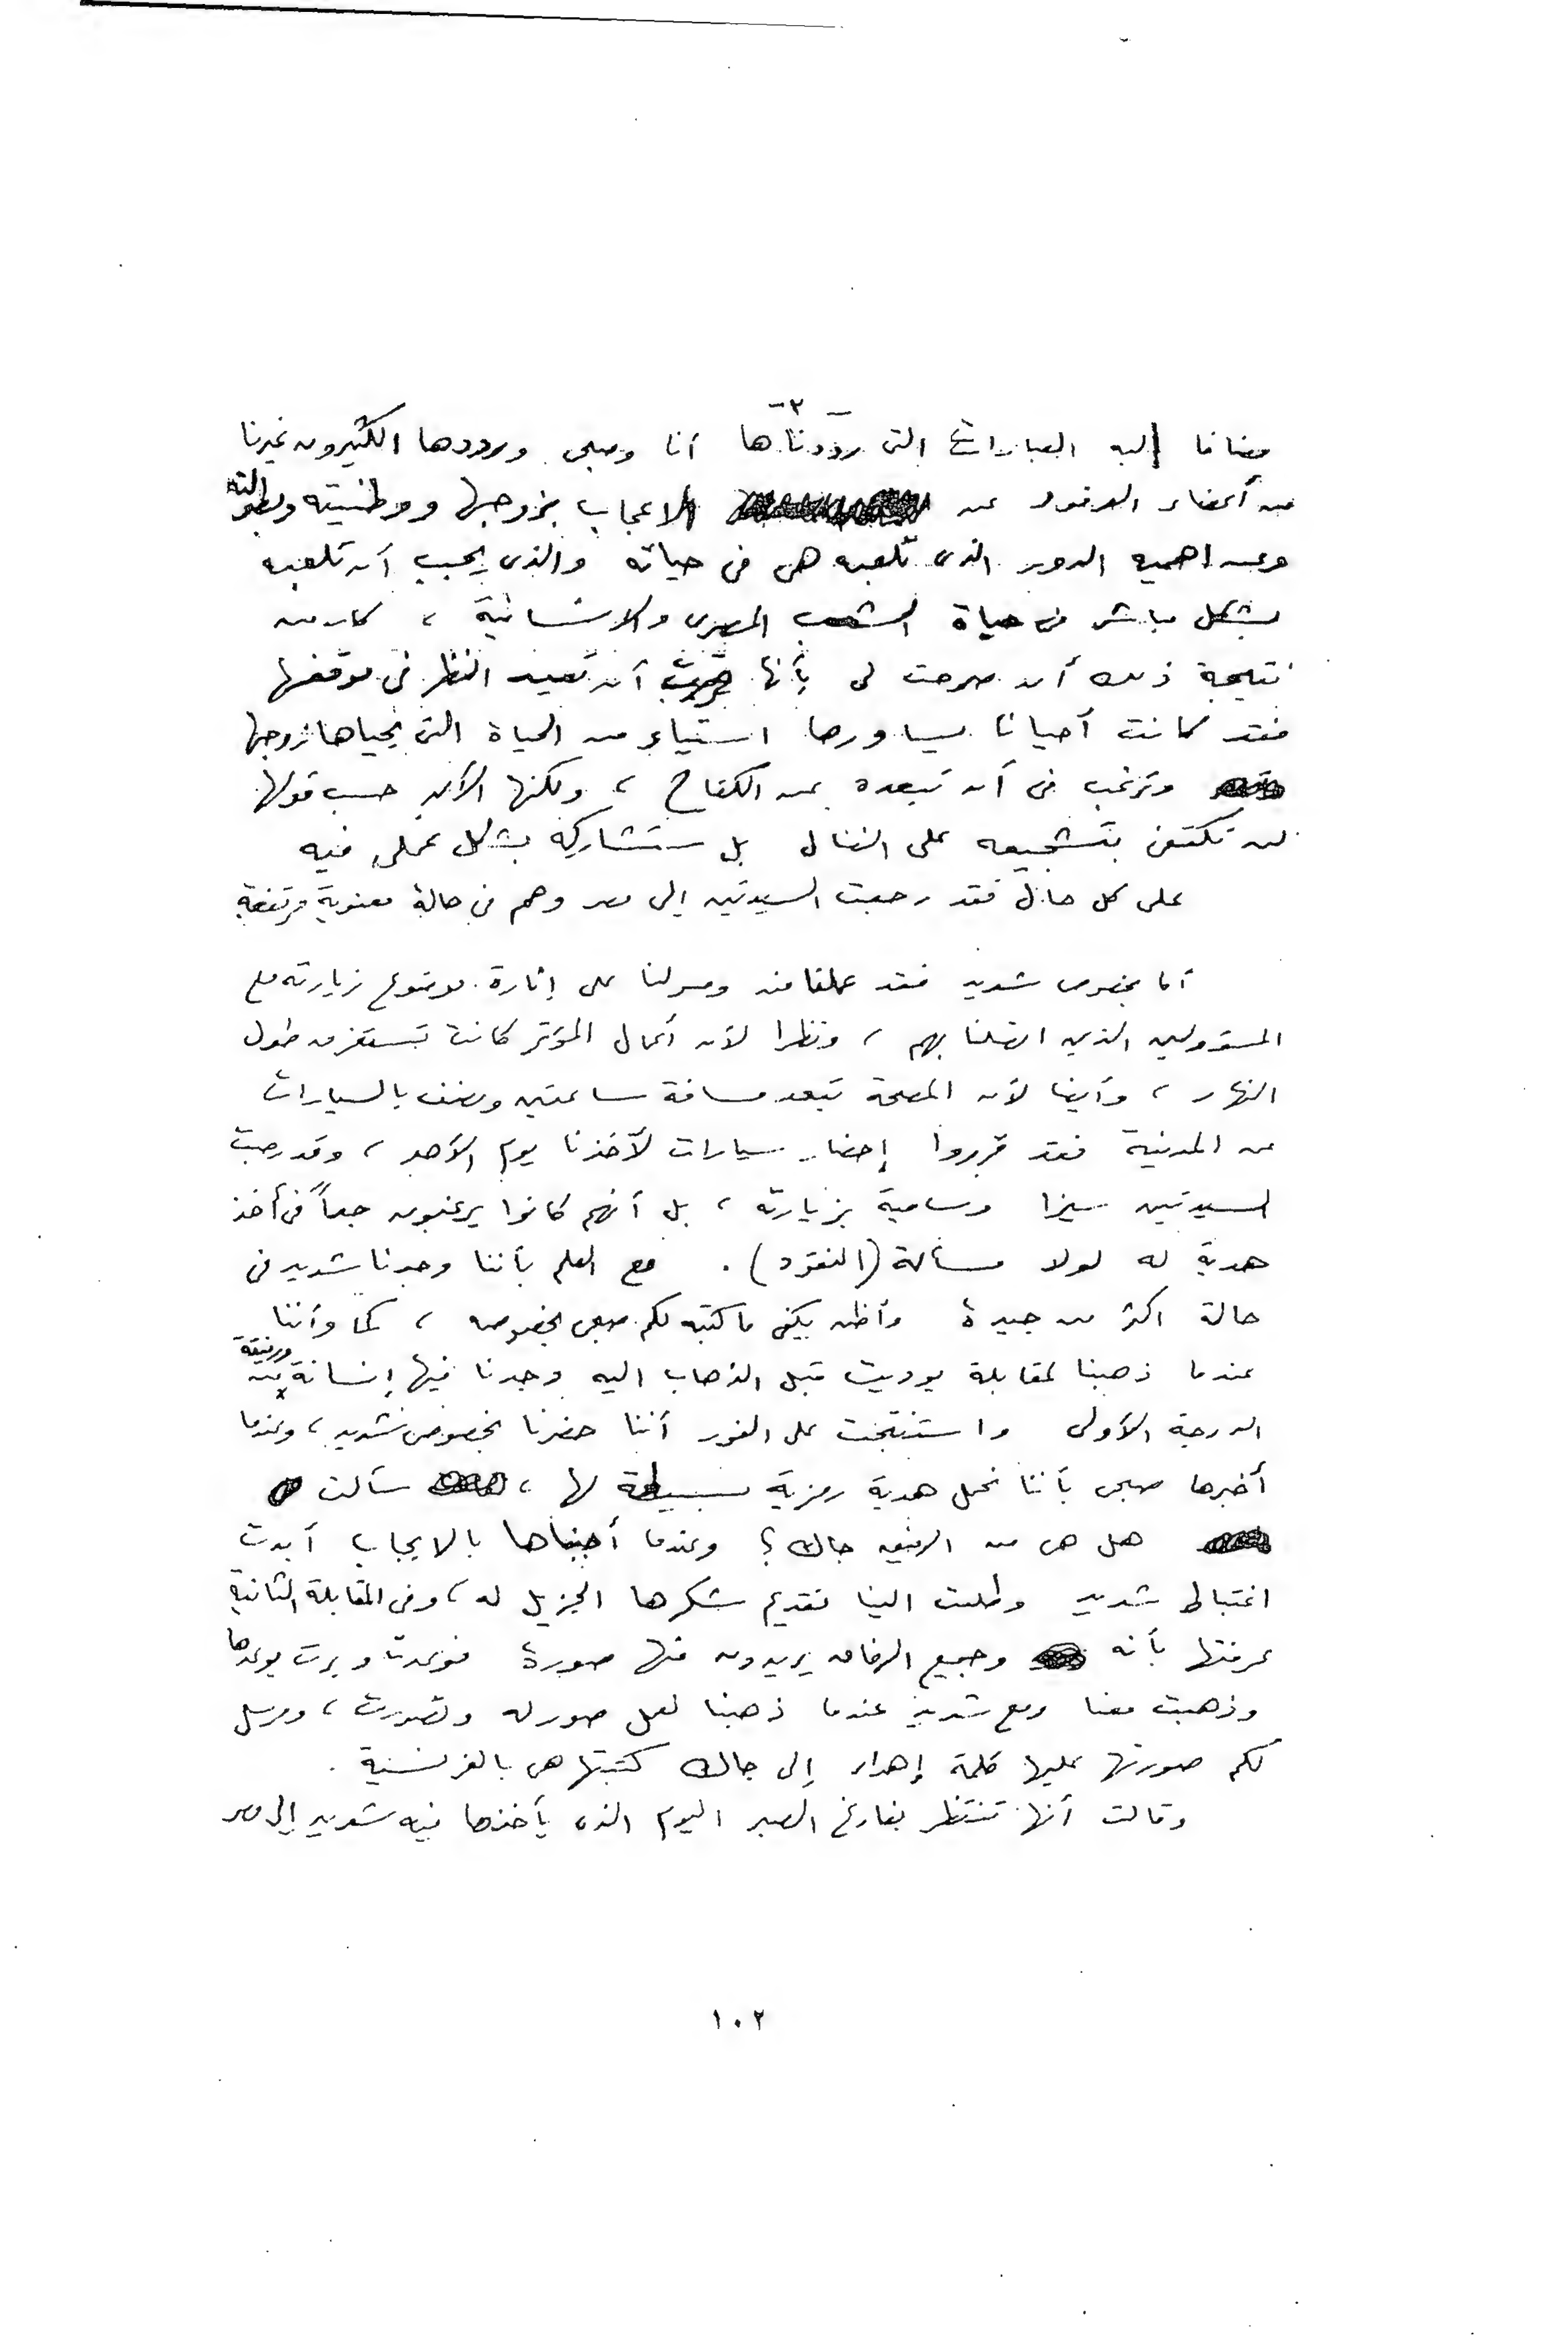 -٢-
مضافا إليه العبارات التى رددناها أنا وصبحى ورددها الكثيرون غيرنا
من أعضاء الوفود عن الاعجاب بزوجها ووطنيته وبطولته
وعن اهمية الدور الذى تلعبه هى فى حياته والذى يجب أن تلعبه
بشكل مباشر فى حياة الشعب المصرى والانسانية ، كان من
نتيجة ذلك أن صرحت لى بأنها قررت أن تعيد النظر فى موقفها
فقد كانت أحيانا يساورها استياء من الحياة التى يحياها زوجها
وترغب فى أن تبعده عن الكفاح ، ولكنها الآن حسب قولها
لن تكتفى بتشجيعه على النضال بل ستشاركه بشكل عملى فيه
على كل حال فقد رجعت السيدتين إلى مصر وهم فى حالة معنوية مرتفعة
أما بخصوص شديد فقد عملنا منذ وصولنا على إثارة موضوع زيارته مع
المسؤولين الذين اتصلنا بهم ، ونظرا لأن أعمال المؤتمر كانت تستغرق طول
النهار ، وأيضا لأن المصحة تبعد مسافة ساعتين ونصف بالسيارات
عن المدينة فقد قرروا إحضار سيارات لأخذنا يوم الأحد ، وقد رحبت
السيدتين سيزا وسامية بزيارته ، بل أنهم كانوا يرغبون جداً فى أخذ
هدية له لولا مسألة (النقود) . مع العلم بأننا وجدنا شديد فى
حالة اكثر من جيدة وأظن يكفى ما كتبه لكم صبحى بخصوصه ، كما وأننا
عندما ذهبنا لمقابلة يوديت قبل الذهاب اليه وجدنا فيها إنسانة ورفيقة من
الدرجة الأولى واستنتجت على الفور أننا حضرنا بخصوص شديد ، وعندما
أخبرها صبحى بأننا نحمل هدية رمزية بسيطة لها ، سألت
هل هى من الرفيق جاك ؟ وعندما أجبناها بالايجاب أبدت
اغتباط شديد وطلبت الينا تقديم شكرها الجزيل له ، وفى المقابلة الثانية
عرفتها بأنه وجميع الرفاق يريدون منها صورة فوعدت وبرت بوعدها
وذهبت معنا ومع شديد عندما ذهبنا لعمل صور له وتصورت ، ومرسل
لكم صورتها عليها كلمة إهداء إلى جاك كتبتها هى بالفرنسية .
وقالت أنها تنتظر بفارغ الصبر اليوم الذى يأخذها فيه شديد إلى مصر
١٠٢